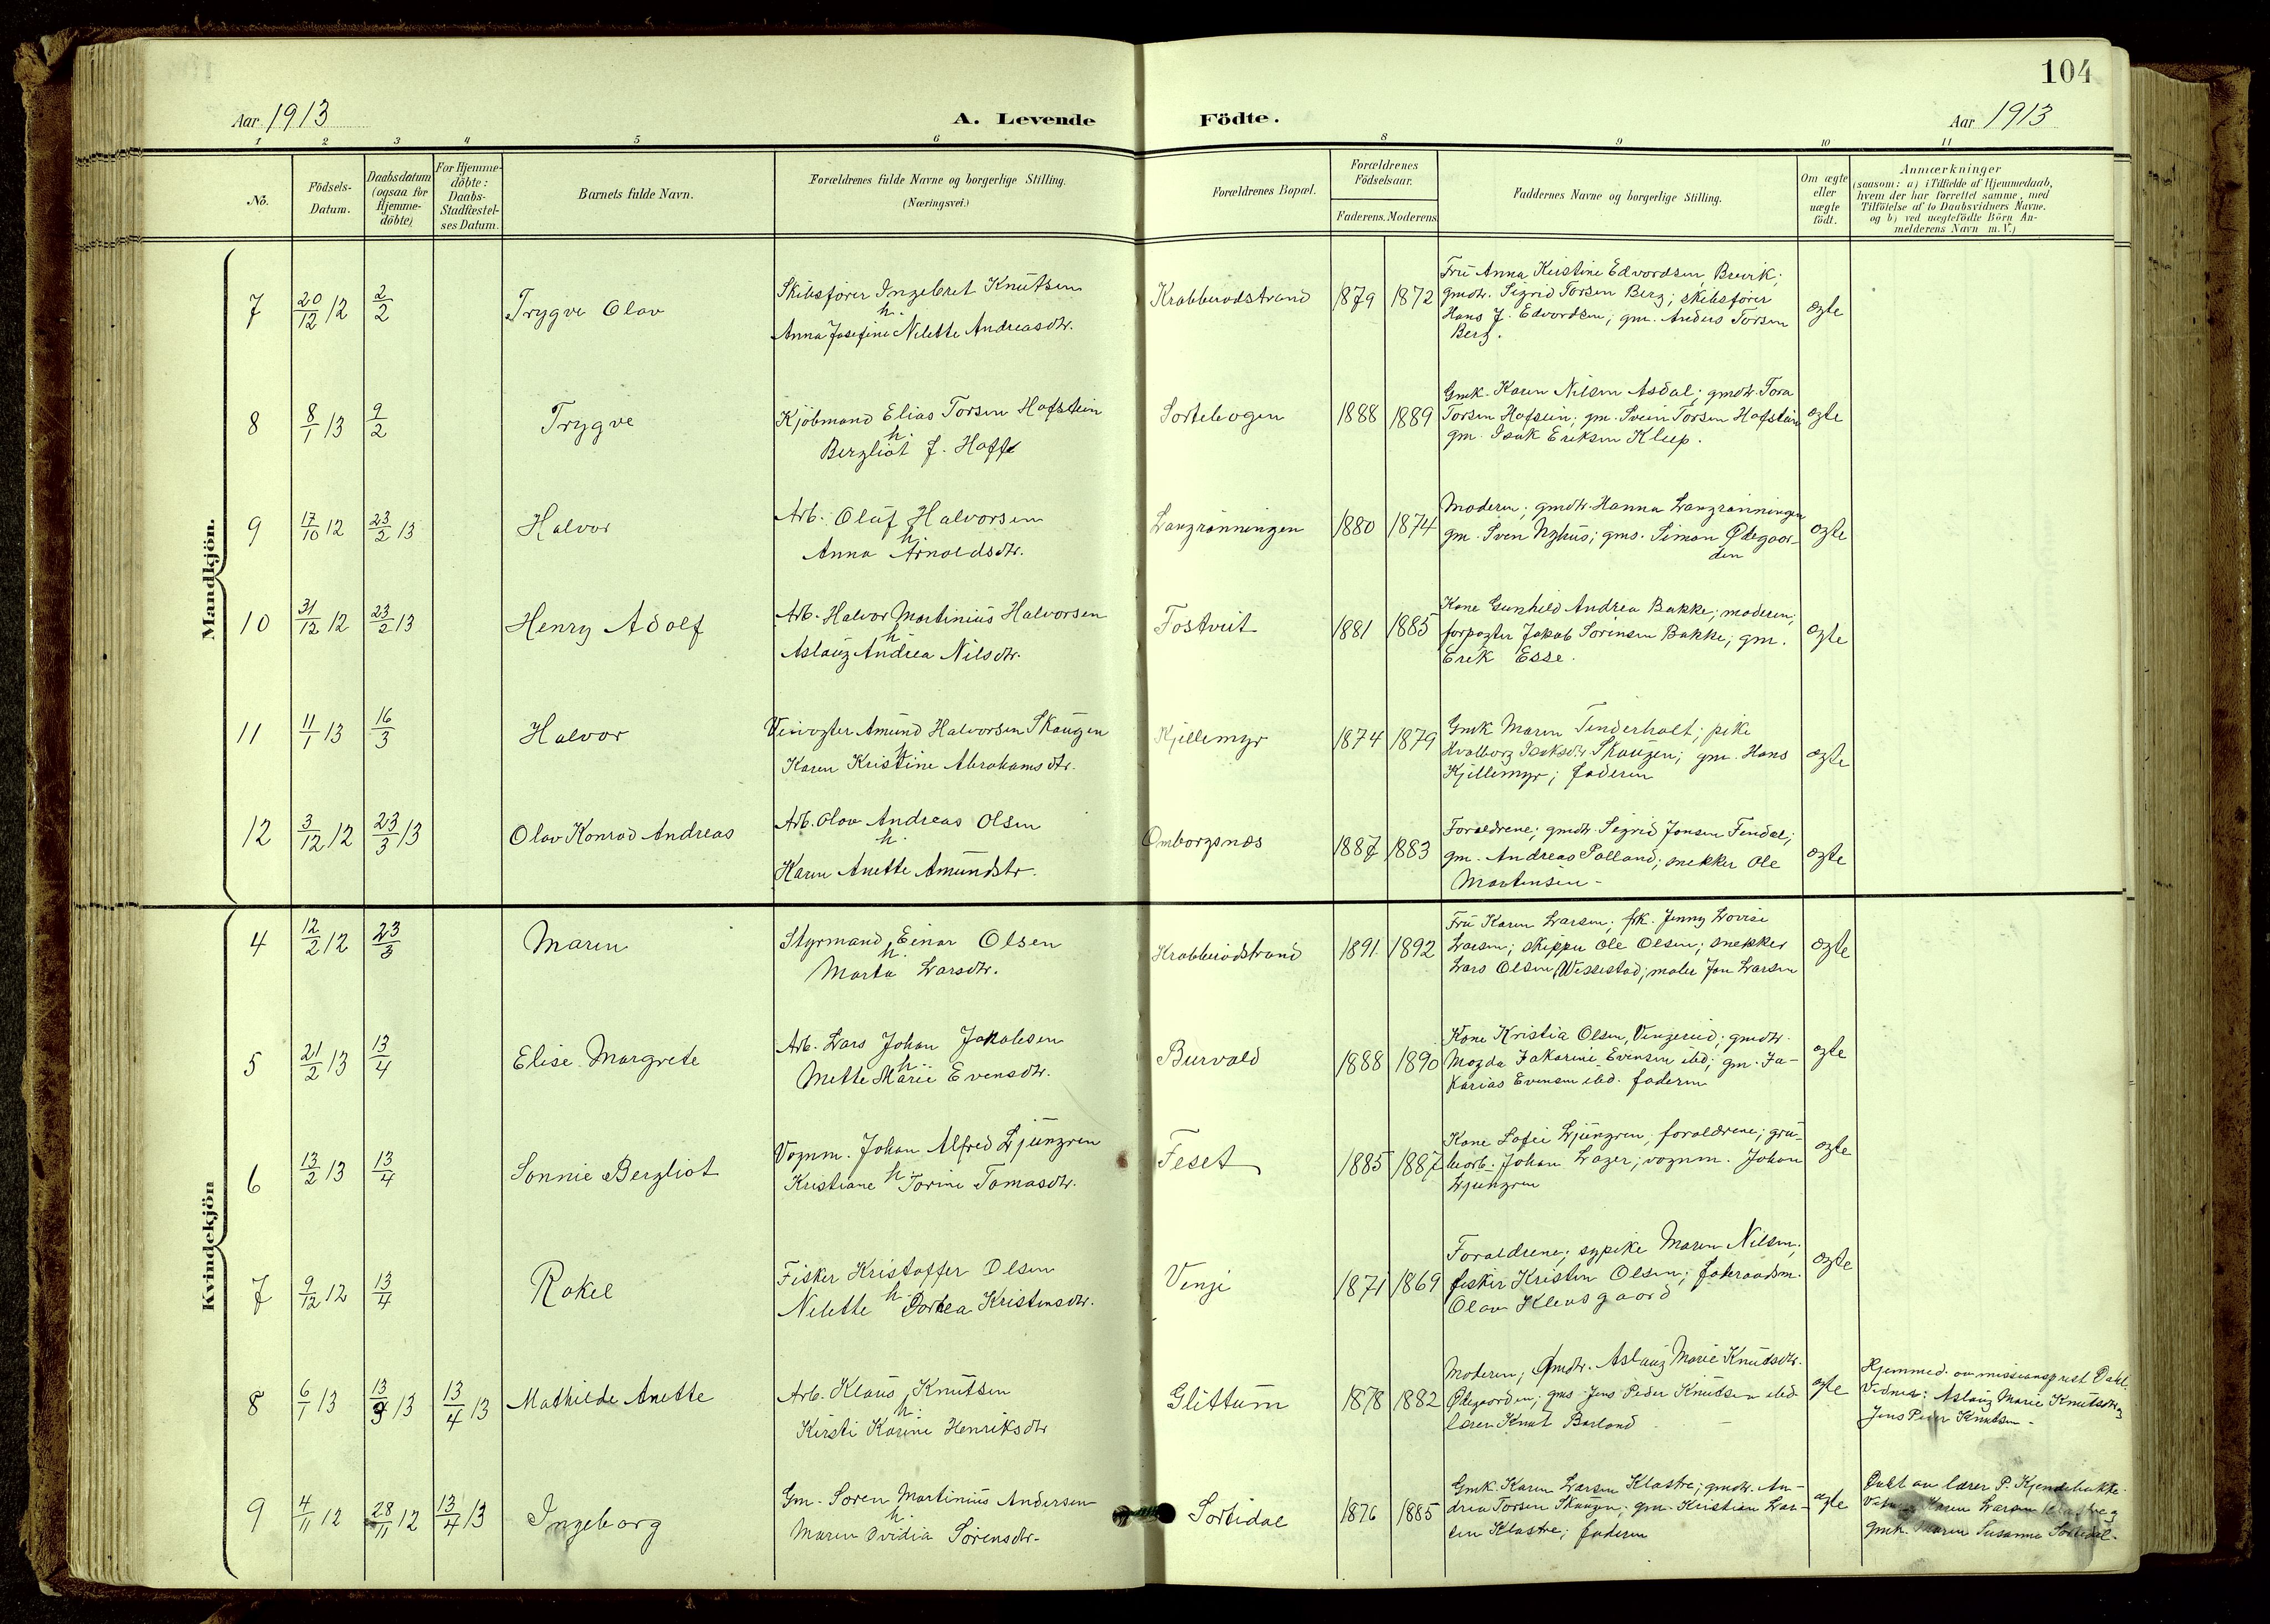 104
Aar 1913
A. Levende Födte.
Aar 1913
1 2 3 4 5 6 8 9 10 11
No.
Födsels-
Datum.
Daabsdatum
(ogsaa for
Hjemme-
döbte)
For Hjemme-
döbte:
Daabs-
Stadfæstel-
ses Datum.
Barnets fulde Navn.
Forældrenes fulde Navne og borgerlige Stilling.
(Næringsvei.)
Forældrenes Bopæl.
Forældrenes
Födselsaar.
Faderens. Moderens
Faddernes Navne og borgerlige Stilling.
Om ægte
eller
uægte
födt.
Anmærkninger
(saasom: a) i Tilfælde af Hjemmedaab,
hvem der har forrettet samme, med
Tilföielse af to Daabsvidners Navne.
og b) ved uægtefödte Börn An-
melderens Navn m. V.)
Mandkjön.
7 20/12 12 2/2 Trygve Olav
Skibsfører Ingebret Knutsen
h.
Anna Josefine Nilette Andreasdtr.
Krabberødstrand 1879 1872
Fru Anna Kristine Edvardsen, Brevik;
gmdtr. Sigrid Torsen Berg; skibsfører
Hans J. Edvardsen; gm. Anders Torsen
Berg.
ægte
8 8/1 13 9/2 Trygve
Kjøbmand Elias Torsen Hafstein
h.
Bergliot J. Hoffe
Sortebogen 1888 1889
Gmk. Karen Nilsen Asdal; gmdtr. Tora
Torsen Hafstein; gm. Svein Torsen Hafstein
gm. Isak Eriksen Klep.
ægte
9 17/10 12 23/2 13 Halvor
Arb. Oluf Halvorsen
h.
Anna Arnoldsdtr.
Langrønningen 1880 1874
Moderen; gmdtr. Hanna Langrønningen
gm. Sven Nyhus; gms. Simon Ødegaar-
den
ægte
10 31/12 12 23/2 13 Henry Adolf
Arb. Halvor Martinius Halvorsen
h.
Aslaug Andrea Nilsdtr.
Fostveit 1881 1885
Kone Gunhild Andrea Bakke; moderen;
forpagter Jakob Sørensen Bakke; gm.
Erik Esse.
ægte
11 11/1 13 16/3 Halvor
Veivogter Amund Halvorsen Skaugen
h.
Karen Kristine Abrahamsdtr.
Kjellemyr 1874 1879
Gmk Maren Tinderholt; pike
Hvalborg Isaksdtr. Skaugen; gm. Hans
Kjellemyr; faderen
ægte
12 3/12 12 23/3 13 Olav Konrad Andreas
Arb. Olav Andreas Olsen
h.
Karen Anette Amundstr.
Omborgsnæs 1887 1883
Forældrene; gmdtr. Sigrid Jonsen Findal;
gm. Andreas Palland; snekker Ole
Martinsen -
ægte
Kvindekjön
4 12/2 12 23/3 Maren
Styrmand Einar Olsen
h.
Marta Larsdtr.
Krabberødstrand 1891. 1892
Fru Karen Larsen; frk. Jenny Lovise
Larsen; skipper Ole Olsen; snekker
Lars Olsen, Wissestad; maler Jon Larsen
ægte
5 21/2 13 13/4 Elise Margrete
Arb. Lars Johan Jakobsen
h.
Mette Marie Evensdtr.
Burvald 1888 1890
Kone Kristia Olsen, Vingereid; gmdtr.
Magda Zakarine Evensen ibd; gm. Za-
karias Evensen ibd. faderen
ægte
6 13/2 13 13/4 Sonnie Bergliot
Vognm. Johan Alfred Ljungren
h.
Kristiane Torine Tomasdtr.
Feset 1885 1887
Kone Sofie Ljungren; forældrene; gru-
bearb. Johan Lager; vognm. Johan
Ljungren
ægte
7 9/12 12 13/4 Rakel
Fisker Kristoffer Olsen
h.
Nilette Dortea Kristensdtr.
Venje 1871 1869
Forældrene; sypike Maren Nilsen;
fisker Kristen Olsen;
Olav Klevsgaard
ægte
8 6/1 13 13/9 13 13/4 13 Mathilde Anette
Arb. Klaus Knutsen
h.
Kirsti Karine Henriksdtr
Glittum 1878 1882
Moderen; Gmdtr. Aslaug Marie Knudsdtr.
Ødegaarden; gms. Jens Peder Knudsen ibd.
lærer Knut Barland
ægte
Hjemmed. av missionsprest Dahl.
Vidner: Aslaug Marie Knutsdtr. og
Jens Peder Knutsen -
9 4/11 12 28/11 12 13/4 13 Ingeborg
Gm. Søren Martinius Andersen
h.
Maren Ovidia Sørensdtr.
Sortidal 1876 1885
Gmk. Karen Larsen Klastre; gmdtr. An-
drea Torsen Skaugen; gm. Kristian Lar-
sen Klastre; faderen
ægte
Døbt av lærer P. Kjendebakke.
Karen Larsen Klastre og
gmk. Maren Susanne Sortidal.